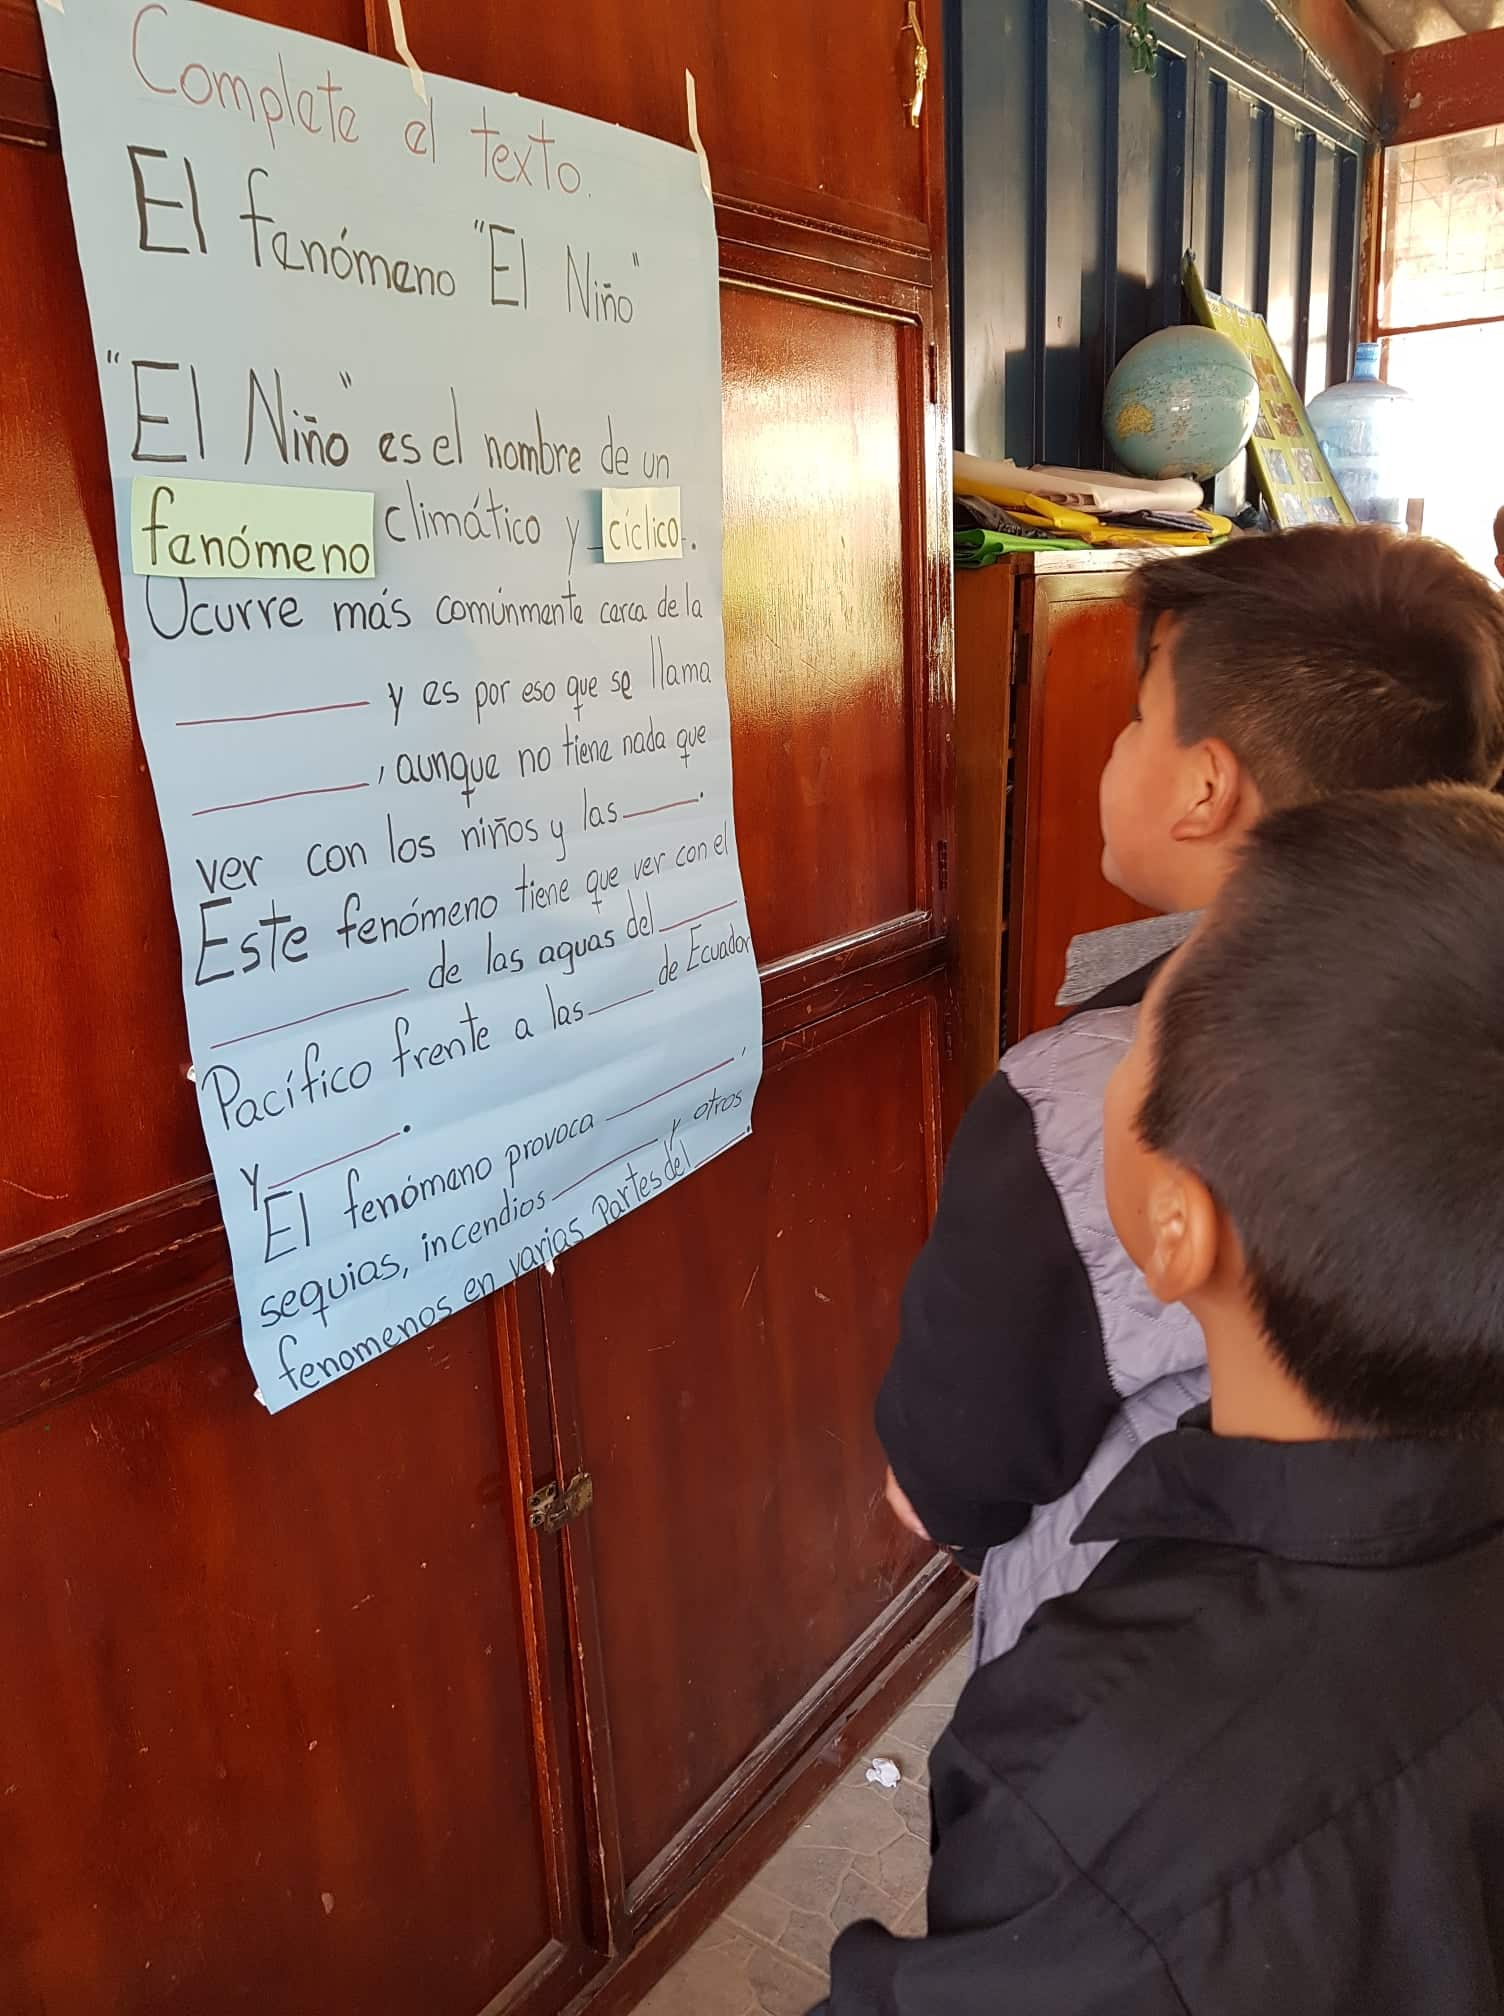 Complete el texto.
El fenómeno "El Niño"
"El Niño" es el nombre de un
fenómeno climático y cíclico.
Ocurre más comúnmente cerca de la
______ y es por eso que se llama
______, aunque no tiene nada que
ver con los niños y las ______.
Este fenómeno tiene que ver con el
______ de las aguas del ______
Pacífico frente a las ______ de Ecuador
y ______.
El fenómeno provoca ______,
sequias, incendios ______ y otros
fenomenos en varias partes del ______.